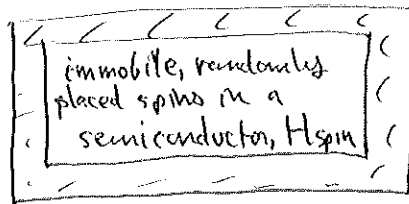 immobile, randomly
placed spins in a
semiconductor, Hspin